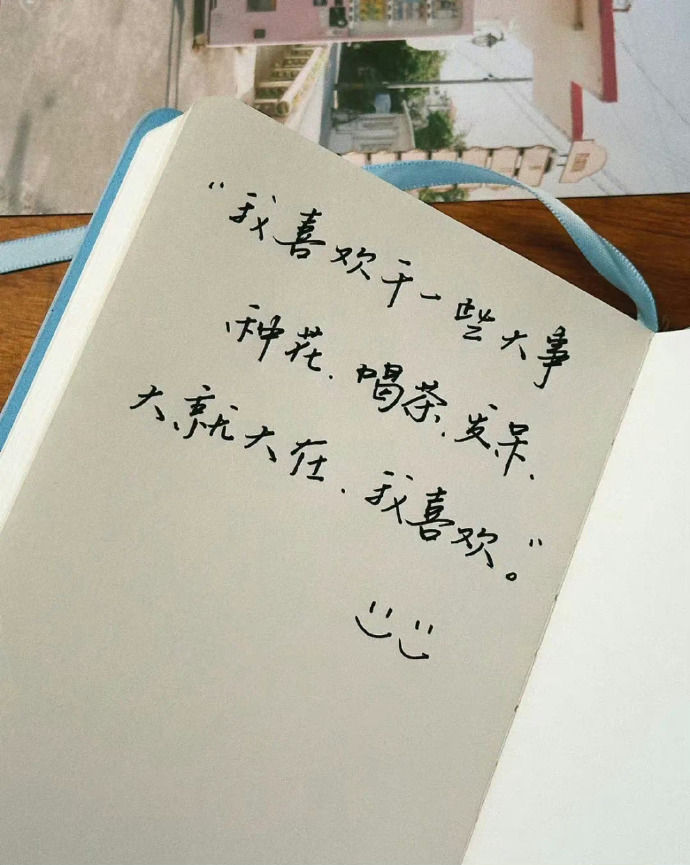 “我喜欢干一些大事
种花.喝茶.发呆.
大就大在.我喜欢。”